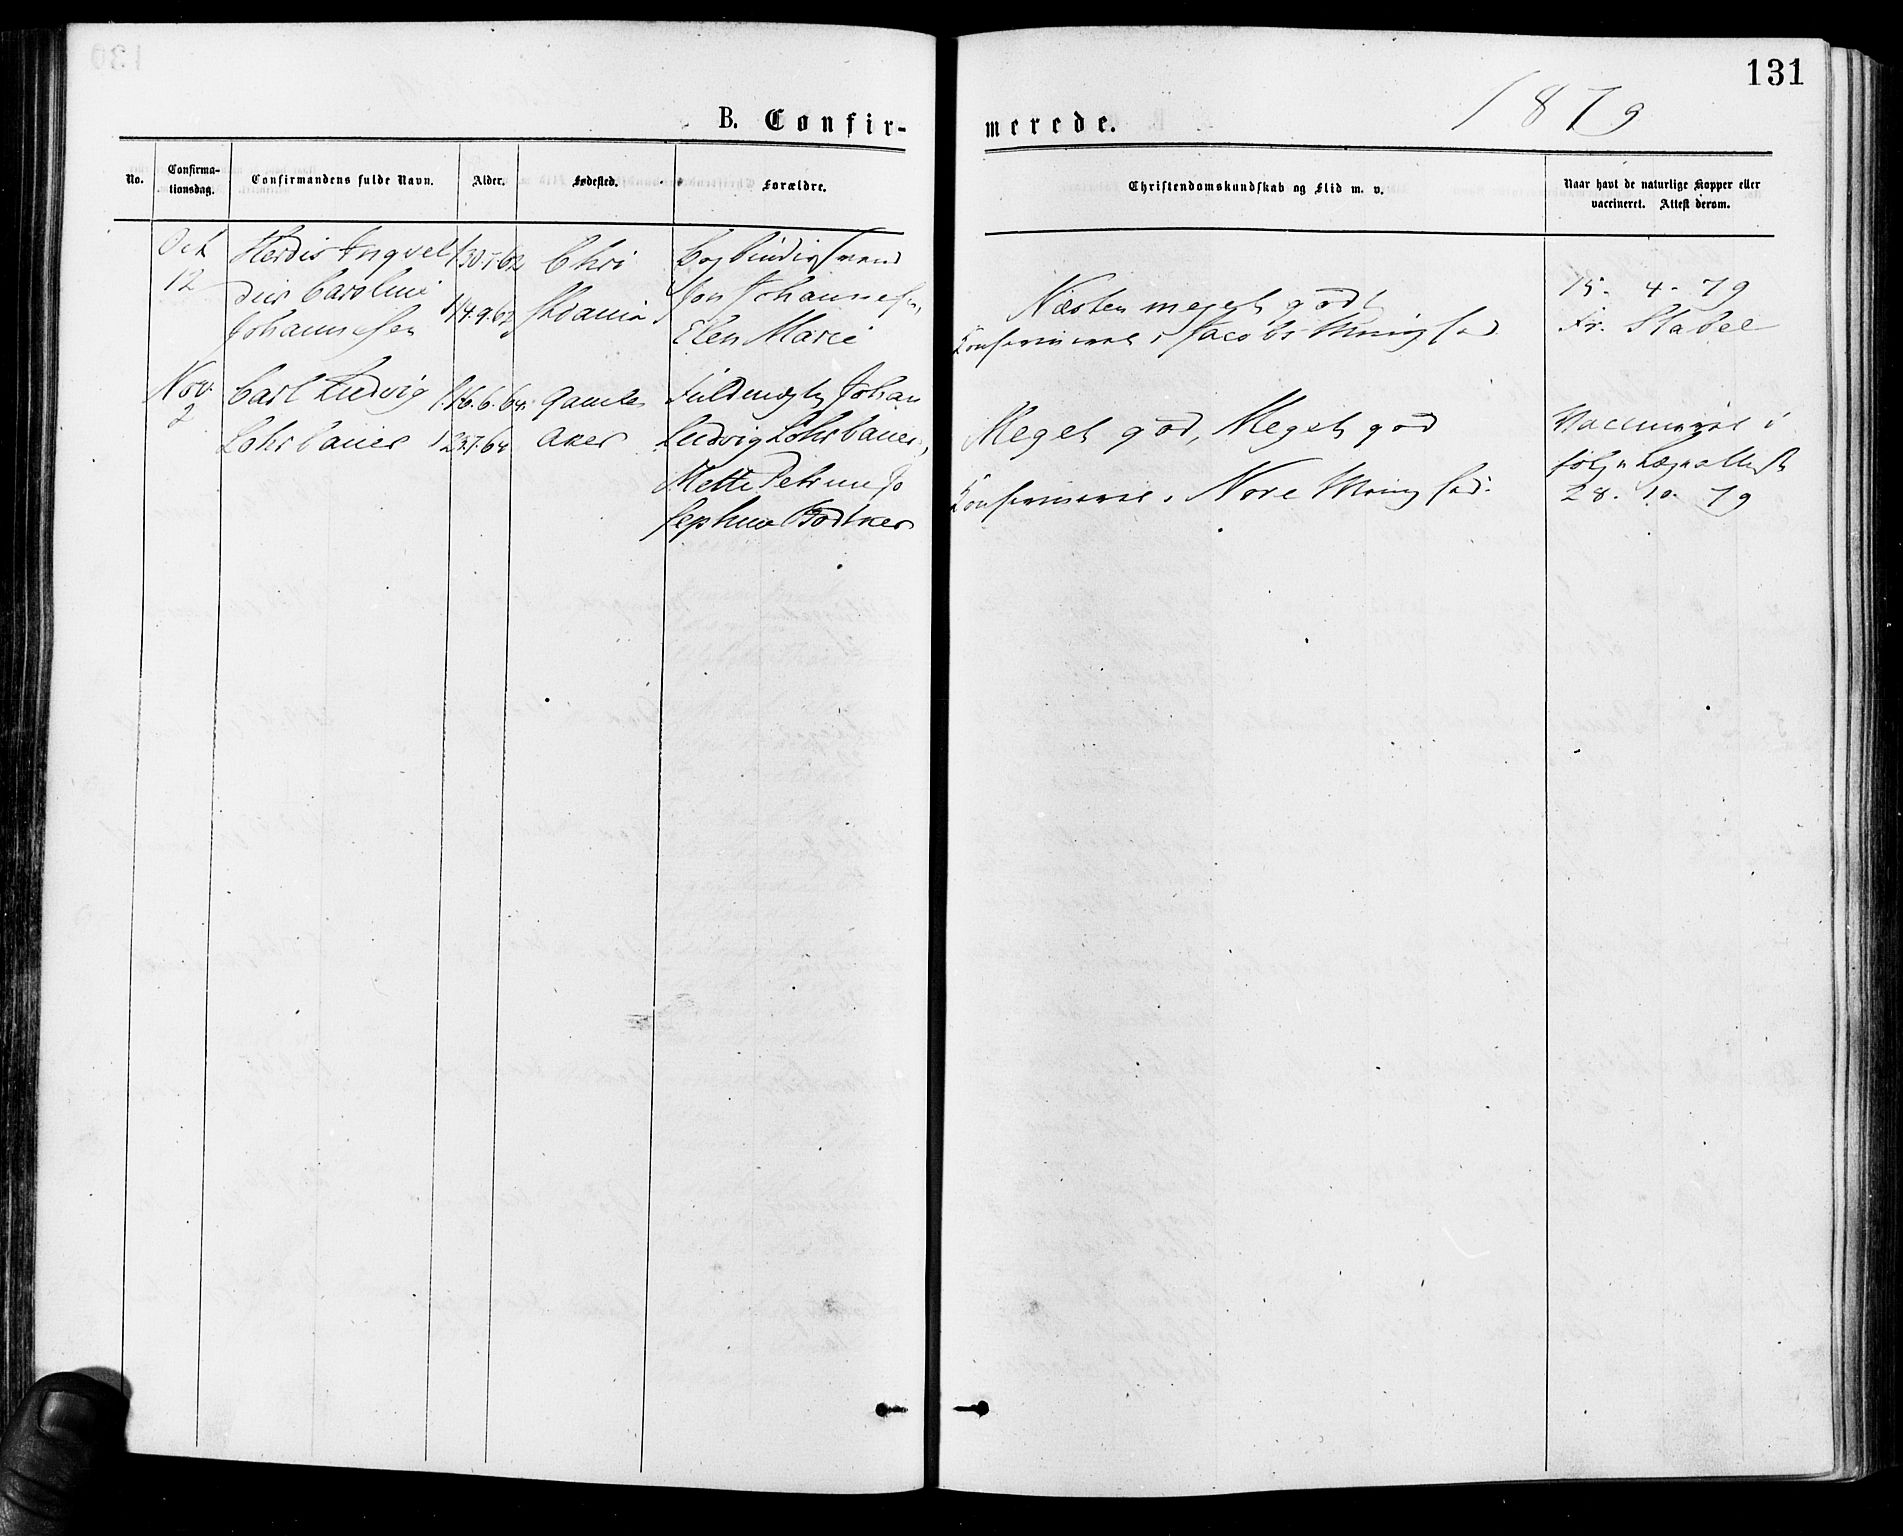 131
1879
B. Confir-
merede.
No.
Confirma-
tionsdag.
Confirmandens fulde Navn.
Alder.
Fødested.
Forældre.
Christendomskundskab og Flid m. v.
Naar havt de naturlige Kopper eller
vaccineret. Attest derom.
Oct
12
Herdis Ingvel
Caroline
Johannesen
14.9.62
Chri
stiania
Bogbindersvend
Jon Johannesen,
Elen Marie
Næsten meget godt
Konfirmeret i Jacobs Menighed
15. 4. 79
Fr. Stabel
Nov.
2
Carl Ludvig
Lohrbauer
16.6.64
Gamle
Aker
Fuldmægtig Johan
Ludvig Lohrbauer,
Mette Petrine Jo
sephine Bødtker
Meget god, Meget god
Konfirmeret i Menighed.
Vaccineret i
følge Lægeattest
28. 10. 79